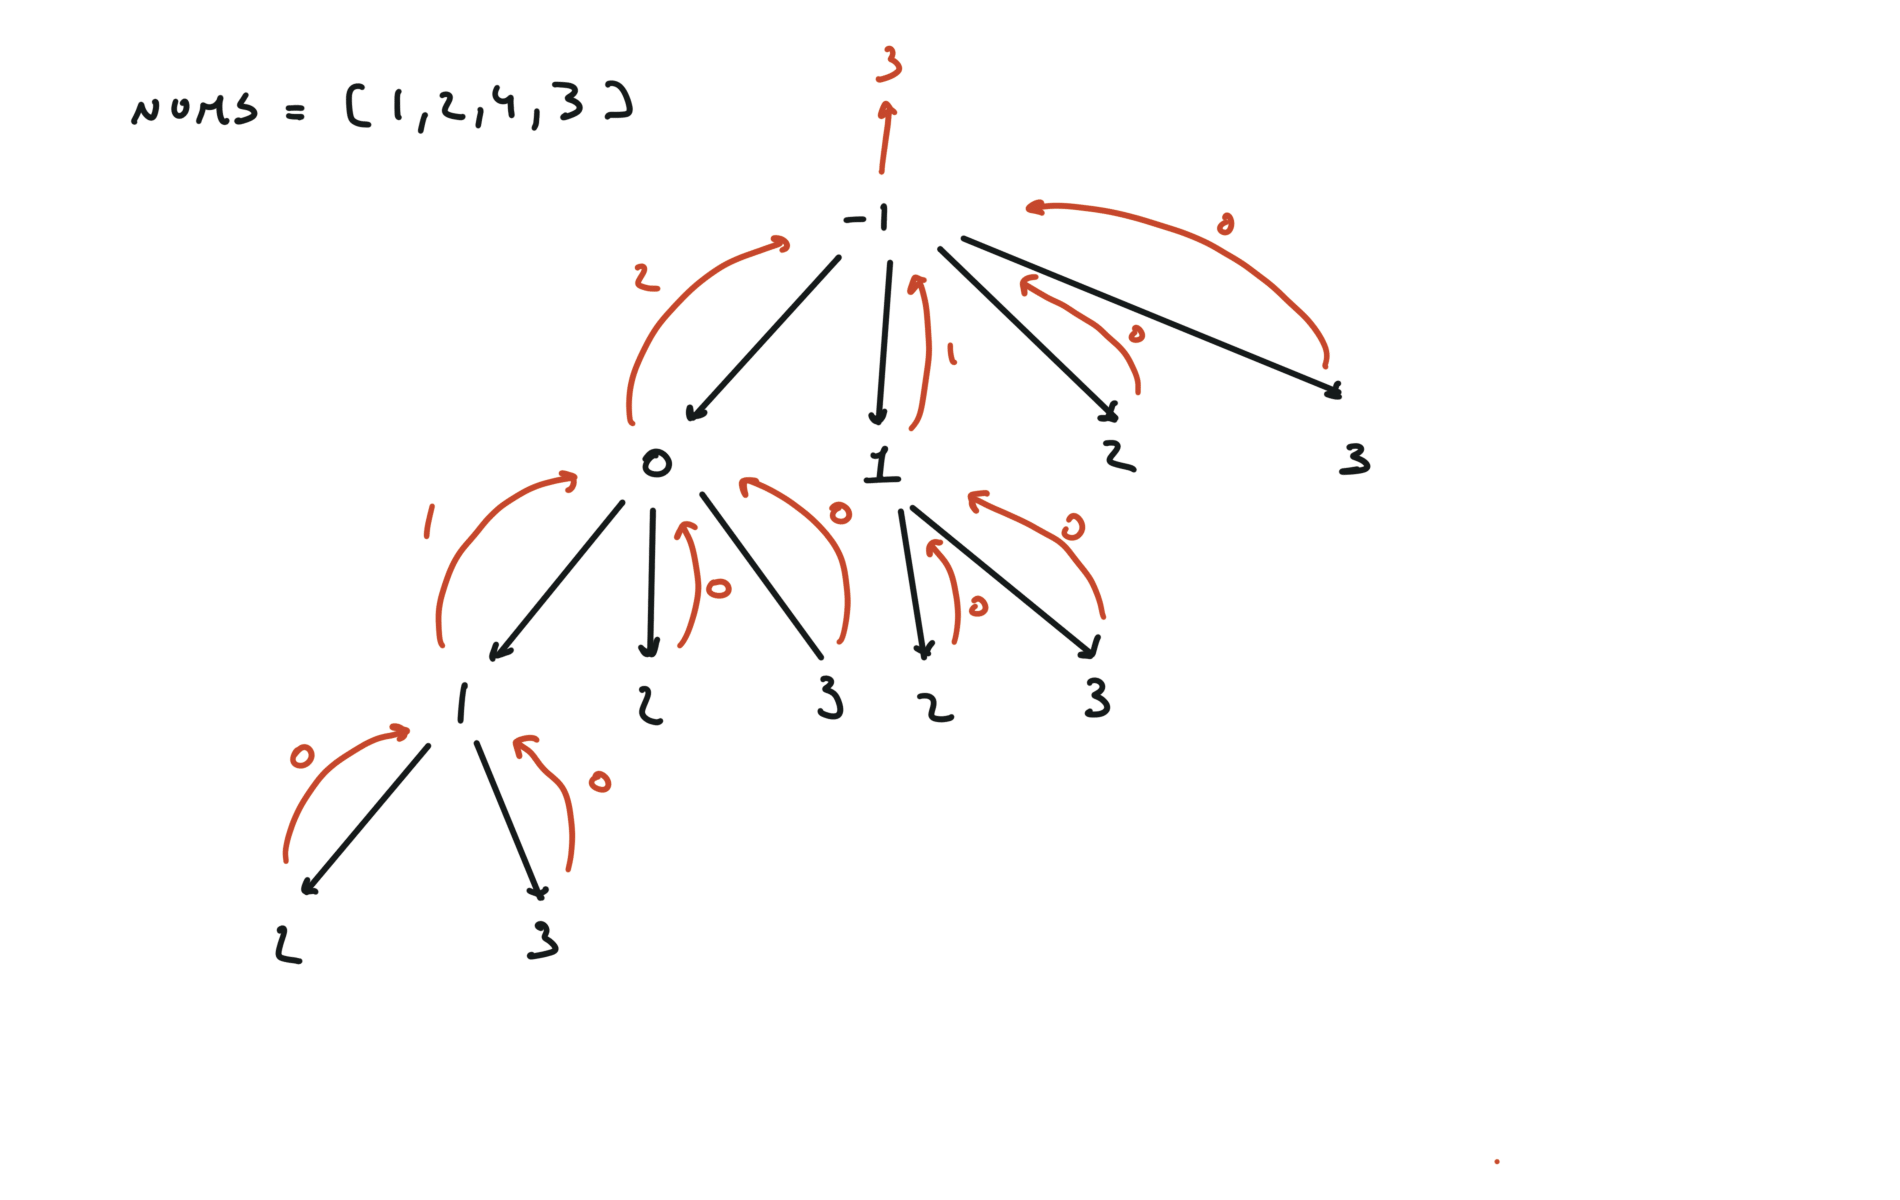 3
NUMS = [1,2,4,3]
-1
0
2
0
1
0
1
2
3
1
0
0
0
0
0
1
2
3
2
3
0
0
2
3